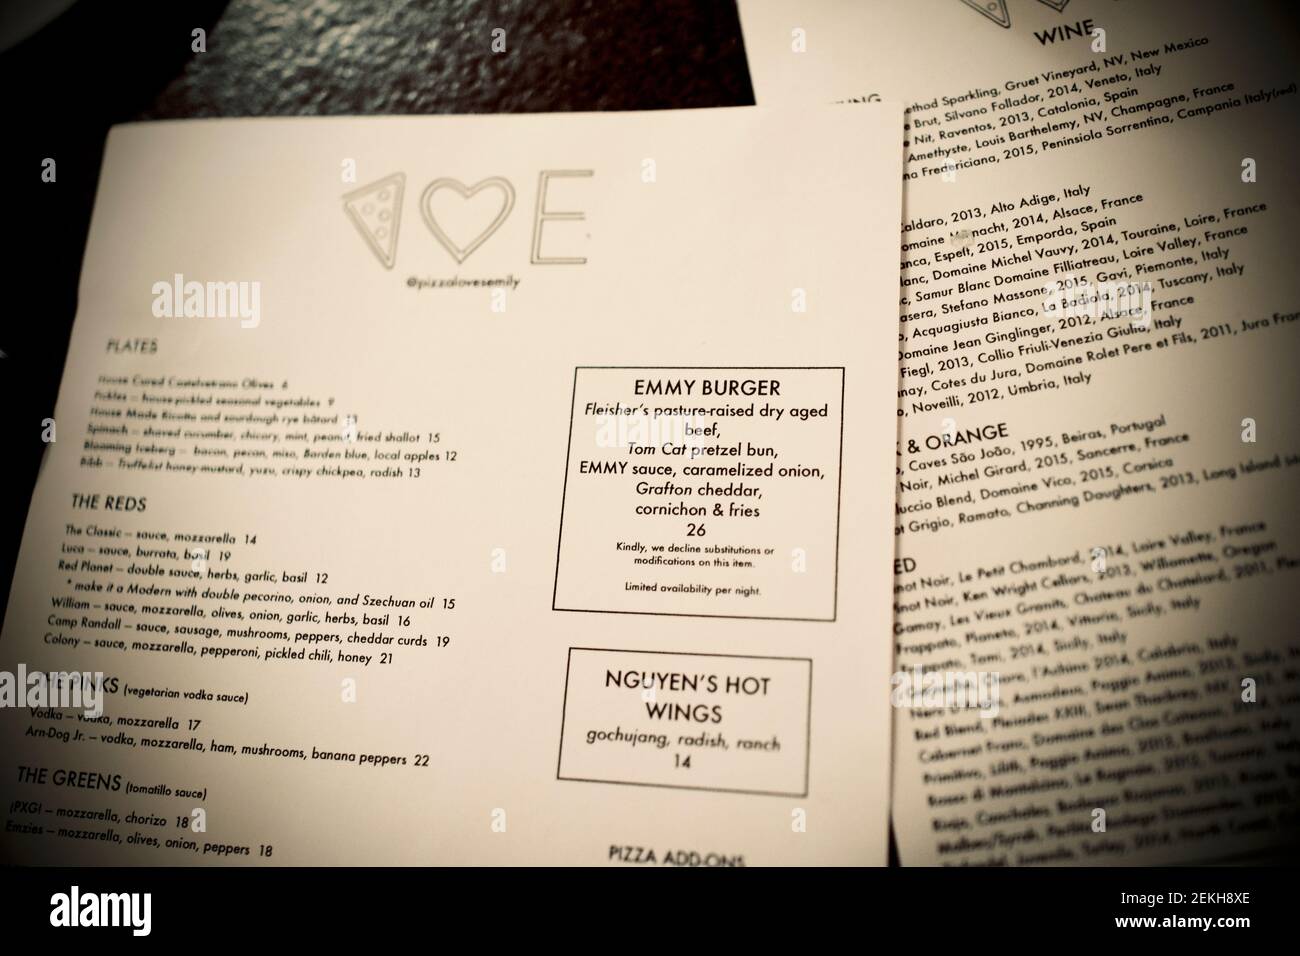 E
@pizzalovesemily
PLATES
House Cured Castelvetrano Olives 6
Pickles – house-pickled seasonal vegetables 9
House Made Ricotta and sourdough rye bâtard 13
Spinach – shaved cucumber, chicory, mint, peanut, fried shallot 15
Blooming Iceberg – bacon, pecan, miso, Barden blue, local apples 12
Bibb – Truffelist honey-mustard, yuzu, crispy chickpea, radish 13
THE REDS
The Classic – sauce, mozzarella 14
Luca – sauce, burrata, basil 19
Red Planet – double sauce, herbs, garlic, basil 12
* make it a Modern with double pecorino, onion, and Szechuan oil 15
William – sauce, mozzarella, olives, onion, garlic, herbs, basil 16
Camp Randall – sauce, sausage, mushrooms, peppers, cheddar curds 19
Colony – sauce, mozzarella, pepperoni, pickled chili, honey 21
THE PINKS (vegetarian vodka sauce)
Vodka – vodka, mozzarella 17
Arn-Dog Jr. – vodka, mozzarella, ham, mushrooms, banana peppers 22
THE GREENS (tomatillo sauce)
¡PXG! – mozzarella, chorizo 18
Emzies – mozzarella, olives, onion, peppers 18
EMMY BURGER
Fleisher's pasture-raised dry aged
beef,
Tom Cat pretzel bun,
EMMY sauce, caramelized onion,
Grafton cheddar,
cornichon & fries
26
Kindly, we decline substitutions or
modifications on this item.
Limited availability per night.
NGUYEN'S HOT
WINGS
gochujang, radish, ranch
14
PIZZA ADD-ONS
WINE
Sparkling, Gruet Vineyard, NV, New Mexico
Brut, Silvano Follador, 2014, Veneto, Italy
Nit, Raventos, 2013, Catalonia, Spain
Amethyste, Louis Barthelemy, NV, Champagne, France
Fredericiana, 2015, Peninsiola Sorrentina, Campania Italy(red)
2013, Alto Adige, Italy
2014, Alsace, France
Espelt, 2015, Emporda, Spain
Domaine Michel Vauvy, 2014, Touraine, Loire, France
Samur Blanc Domaine Filliatreau, Loire Valley, France
Stefano Massone, 2015, Gavi, Piemonte, Italy
Acquagiusta Bianco, La Badiola, 2014, Tuscany, Italy
Domaine Jean Ginglinger, 2012, Alsace, France
Fiegl, 2013, Collio Friuli-Venezia Giulia, Italy
Cotes du Jura, Domaine Rolet Pere et Fils, 2011, Jura
Noveilli, 2012, Umbria, Italy
& ORANGE
Caves São João, 1995, Beiras, Portugal
Noir, Michel Girard, 2015, Sancerre, France
Blend, Domaine Vico, 2015, Corsica
Grigio, Ramato, Channing Daughters, 2013, Long Island
Noir, Le Petit Chambord, 2014, Loire Valley, France
Noir, Ken Wright Cellars, 2013, Willamette, Oregon
Gamay, Les Vieux Granits, Chateau du Chatelard, 2011,
Frappato, Planeta, 2014, Vittoria, Sicily, Italy
Frappato, Tami, 2014, Sicily, Italy
2014, Calabria, Italy
alamy
Image ID: 2EKH8XE
www.alamy.com